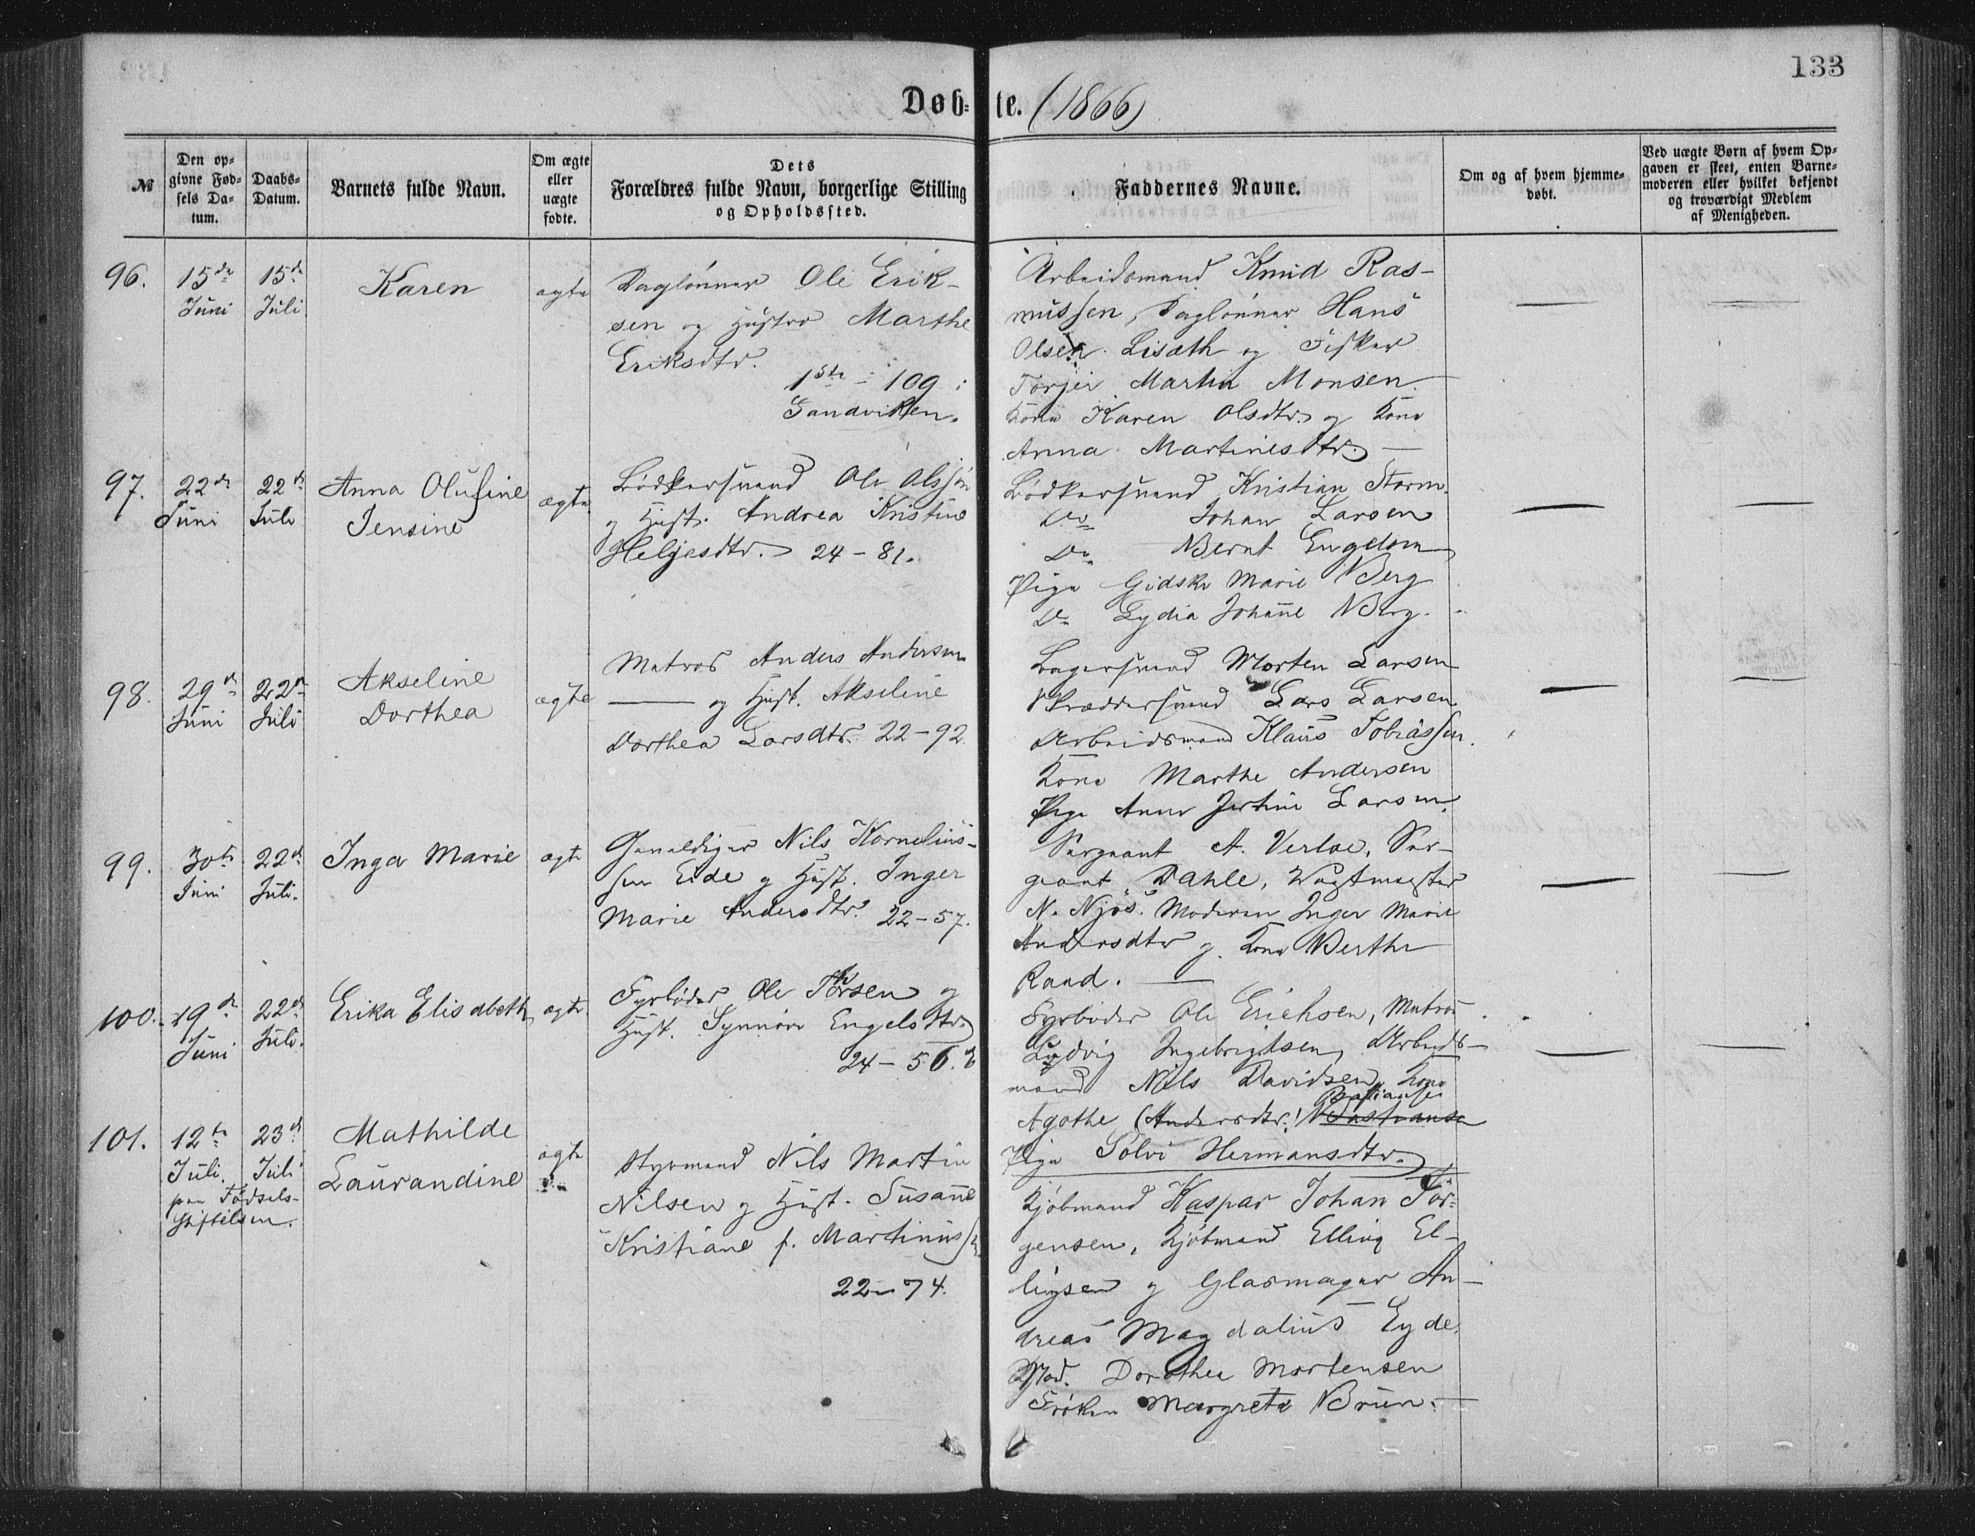 133
Døb- te. (1866)
№
Den opgivne Fødsels Datum.
Daabs-Datum.
Barnets fulde Navn.
Om ægte eller uægte fødte.
Dets
Forældres fulde Navn, borgerlige Stilling
og Opholdssted.
Faddernes Navne.
Om og af hvem hjemmedøbt.
Ved uægte Børn af hvem Opgaven er skeet, enten Barnemoderen eller hvilket bekjendt og troværdigt Medlem af Menigheden.
96.
15de
Juni
15de
Juli
Karen
ægte
Daglønner Ole Erik-
sen og Hustro Marthe
Eriksdtr.
1ste - 109.
Sandviken.
Arbeidsmand Knud Ras-
mussen, Daglønner Hans
Olsen Lisæth og Fisker
Torjer Martin Monsen.
Kone Karen Olsdtr. og Kone
Anna Martinesdtr. —
97.
22de
Juni
22de
Juli
Anna Olufine
Jensine
ægte
Bødkersvend Ole Olssen
og Hust. Andrea Kristine
Heljesdtr. 24 - 81.
Bødkersvend Kristian Storm.
Do Johan Larsen
Do Bernt Engelsen
Pige Gidske Marie Berg
Do Lydia Johanne Berg.
98.
29de
Juni
22de
Juli
Akseline
Dorthea
ægte
Matros Anders Andersen
— og Hust. Akseline
Dorthea Larsdtr. 22 - 92
Bagersvend Morten Larsen
Skræddersvend Lars Larsen
Arbeidsmand Klaus Tobiassen.
Kone Marthe Andersen
Pige Anne Jertine Larsen.
99.
30te
Juni
22de
Juli.
Inga Marie
ægte
Gevaldiger Nils Kornelius-
sen Eide og Hust. Inger
Marie Andersdtr. 22 - 57.
Sergeant A. Verloe, Ser-
geant Dahle, Vagtmester
N. Njøs. Moderen Inger Marie
Andersdtr og Kone Berthe
Rand. —
100.
19de
Juni
22de
Juli.
Erika Elisabeth
ægte
Fyrbøder Ole Thorsen og
Hust. Synnøve Engelsdtr.
24 - 56. b
Fyrbøder Ole Erichsen, Matros
Ludvig Ingebrigtsen, Arbeids-
mand Nils Davidsen, Kone
Bastiansen
Agathe (Andersdtr.) Bastiansen
Pige Solvi Hermansdtr.
101.
12te
Juli.
paa Fødsels-
stiftelsen.
23de
Juli
Mathilde
Laurandine
ægte
Styrmand Nils Martin
Nilsen og Hust. Susanne
Kristiane f. Martinussen
22 - 74.
Kjøbmand Kaspar Johan Jør-
gensen, Kjøbmand Elling El-
lingsen og Glasmager An-
dreas Magdalius Eyde.
Mad. Dorothea Mortensen
Frøken Margrete Brun. —